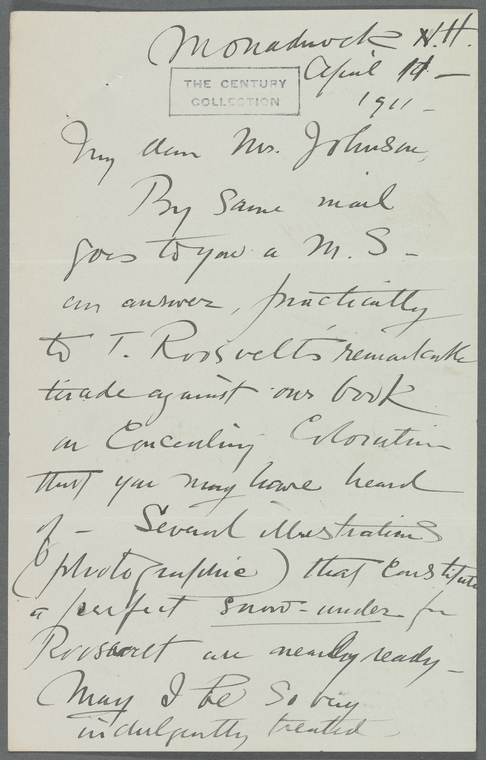 Monadnock N.H.
April 14 —
1911 —
THE CENTURY
COLLECTION
My dear Mr. Johnson,
By same mail
goes to you a M.S —
an answer, practically
to T. Roosvelt's remarkable
tirade against our book
on Concealing Coloration
that you may have heard
of — Several illustrations
(photographic) that constitute
a perfect snow-under for
Roosevelt are nearly ready —
May I be so very
indulgently treated